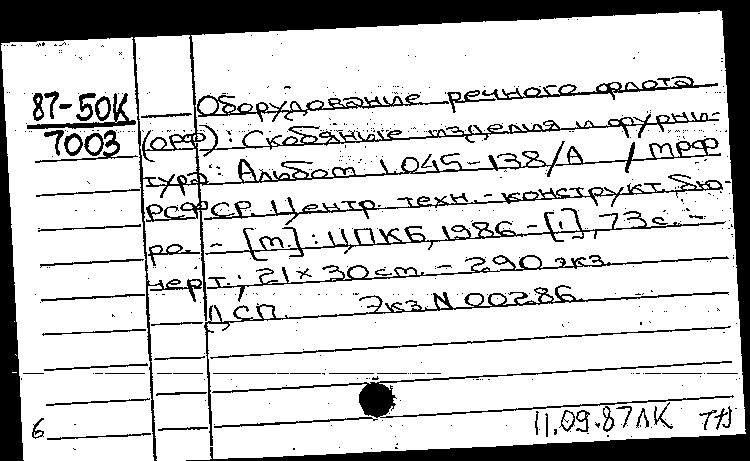 87-50К
7003
Оборудование речного флота
(ОРФ): Скобяные изделия и фурни-
тура: Альбом 1.045-138/А / МРФ
РСФСР. Центр. техн.-конструкт. бю-
ро. - [М.]: ЦПКБ, 1986.-[1], 73 с. -
черт.; 21 × 30 см. - 290 экз.
ДСП. Экз. N 00286.
6
11.09.87 ЛК